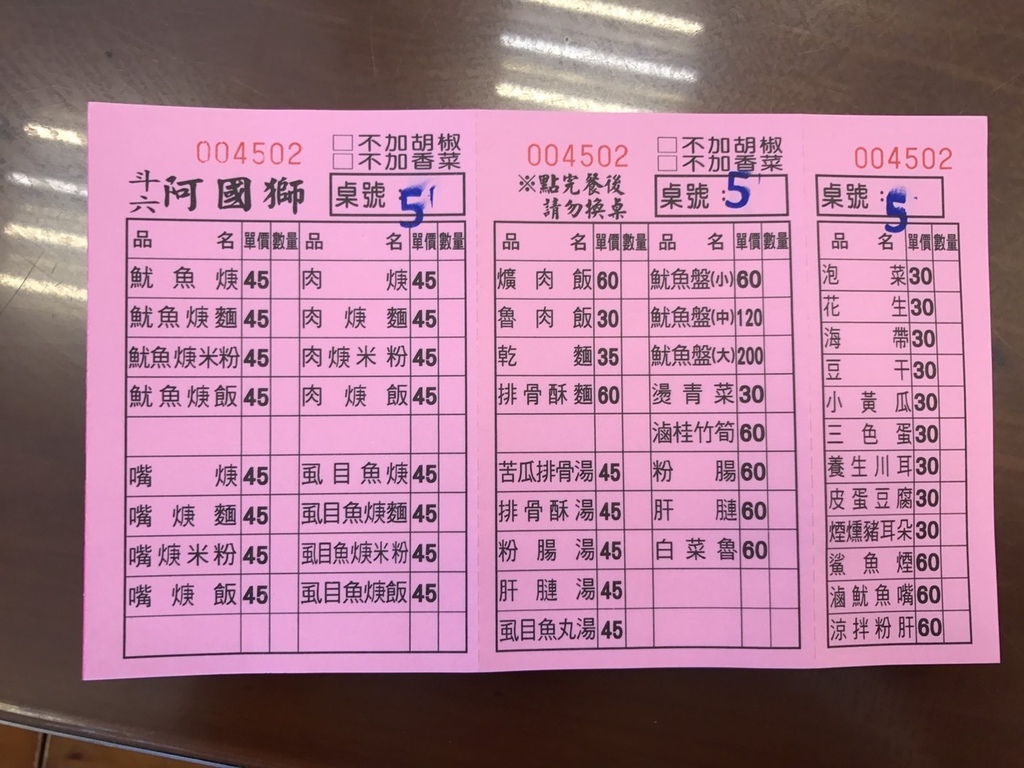 004502
□不加胡椒
□不加香菜
斗六 阿國獅
桌號 : 5
品名 單價 數量 品名 單價 數量
魷魚焿 45 肉焿 45
魷魚焿麵 45 肉焿麵 45
魷魚焿米粉 45 肉焿米粉 45
魷魚焿飯 45 肉焿飯 45
嘴焿 45 虱目魚焿 45
嘴焿麵 45 虱目魚焿麵 45
嘴焿米粉 45 虱目魚焿米粉 45
嘴焿飯 45 虱目魚焿飯 45
004502
□不加胡椒
□不加香菜
※點完餐後
請勿換桌
桌號 : 5
品名 單價 數量 品名 單價 數量
爌肉飯 60 魷魚盤(小) 60
魯肉飯 30 魷魚盤(中) 120
乾麵 35 魷魚盤(大) 200
排骨酥麵 60 燙青菜 30
滷桂竹筍 60
苦瓜排骨湯 45 粉腸 60
排骨酥湯 45 肝膭 60
粉腸湯 45 白菜魯 60
肝膭湯 45
虱目魚丸湯 45
004502
桌號 : 5
品名 單價 數量
泡菜 30
花生 30
海帶 30
豆干 30
小黃瓜 30
三色蛋 30
養生川耳 30
皮蛋豆腐 30
煙燻豬耳朵 30
鯊魚煙 60
滷魷魚嘴 60
涼拌粉肝 60